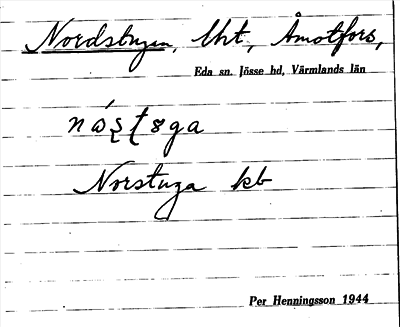 Nordstugan, Uht, Åmotfors,
Eda sn. Jösse hd, Värmlands län
nɷ́ʂʈɞga
Norstuga kb
Per Henningsson 1944